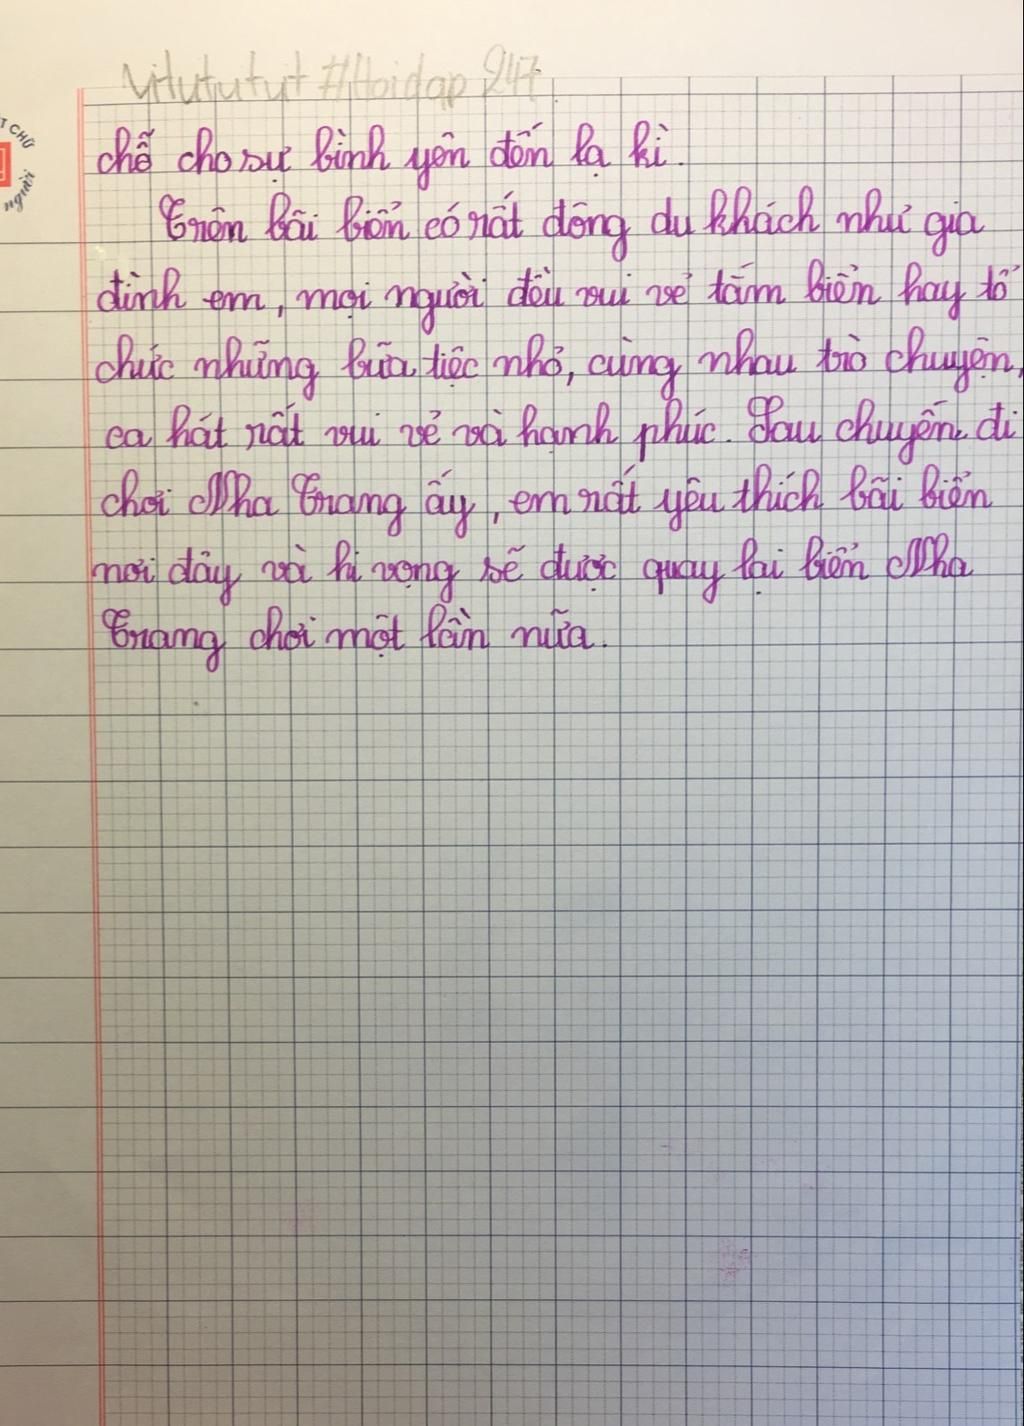 yitututut #Hoidap 247
T CHỮ
người
chỗ cho sự bình yên đến lạ kì.
Trên bãi biển có rất đông du khách như gia
đình em, mọi người đều vui vẻ tắm biển hay tổ
chức những bữa tiệc nhỏ, cùng nhau trò chuyện,
ca hát rất vui vẻ và hạnh phúc. Sau chuyến đi
chơi Nha Trang ấy, em rất yêu thích bãi biển
nơi đây và hi vọng sẽ được quay lại biển Nha
Trang chơi một lần nữa.